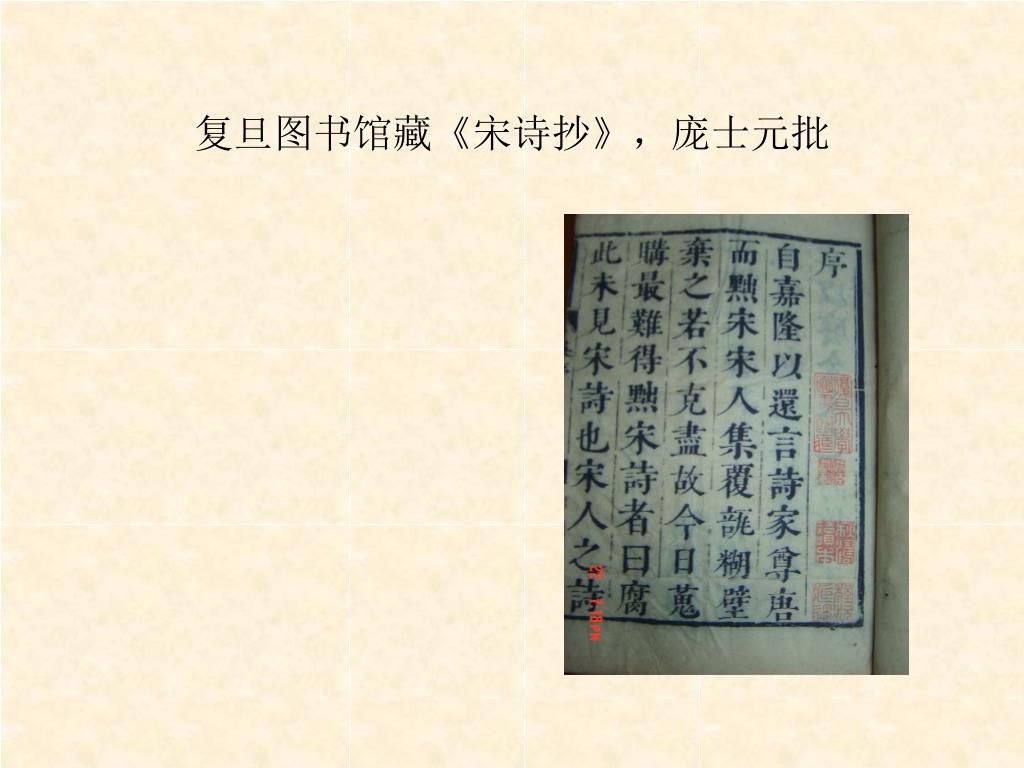 复旦图书馆藏《宋诗抄》，庞士元批
序
自嘉隆以還言詩家尊唐
而黜宋宋人集覆瓿糊壁
棄之若不克盡故今日蒐
購最難得黜宋詩者曰腐
此未見宋詩也宋人之詩